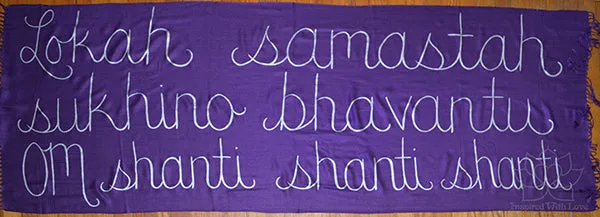 Lokah samastah
sukhino bhavantu
OM shanti shanti shanti
Inspired With Love